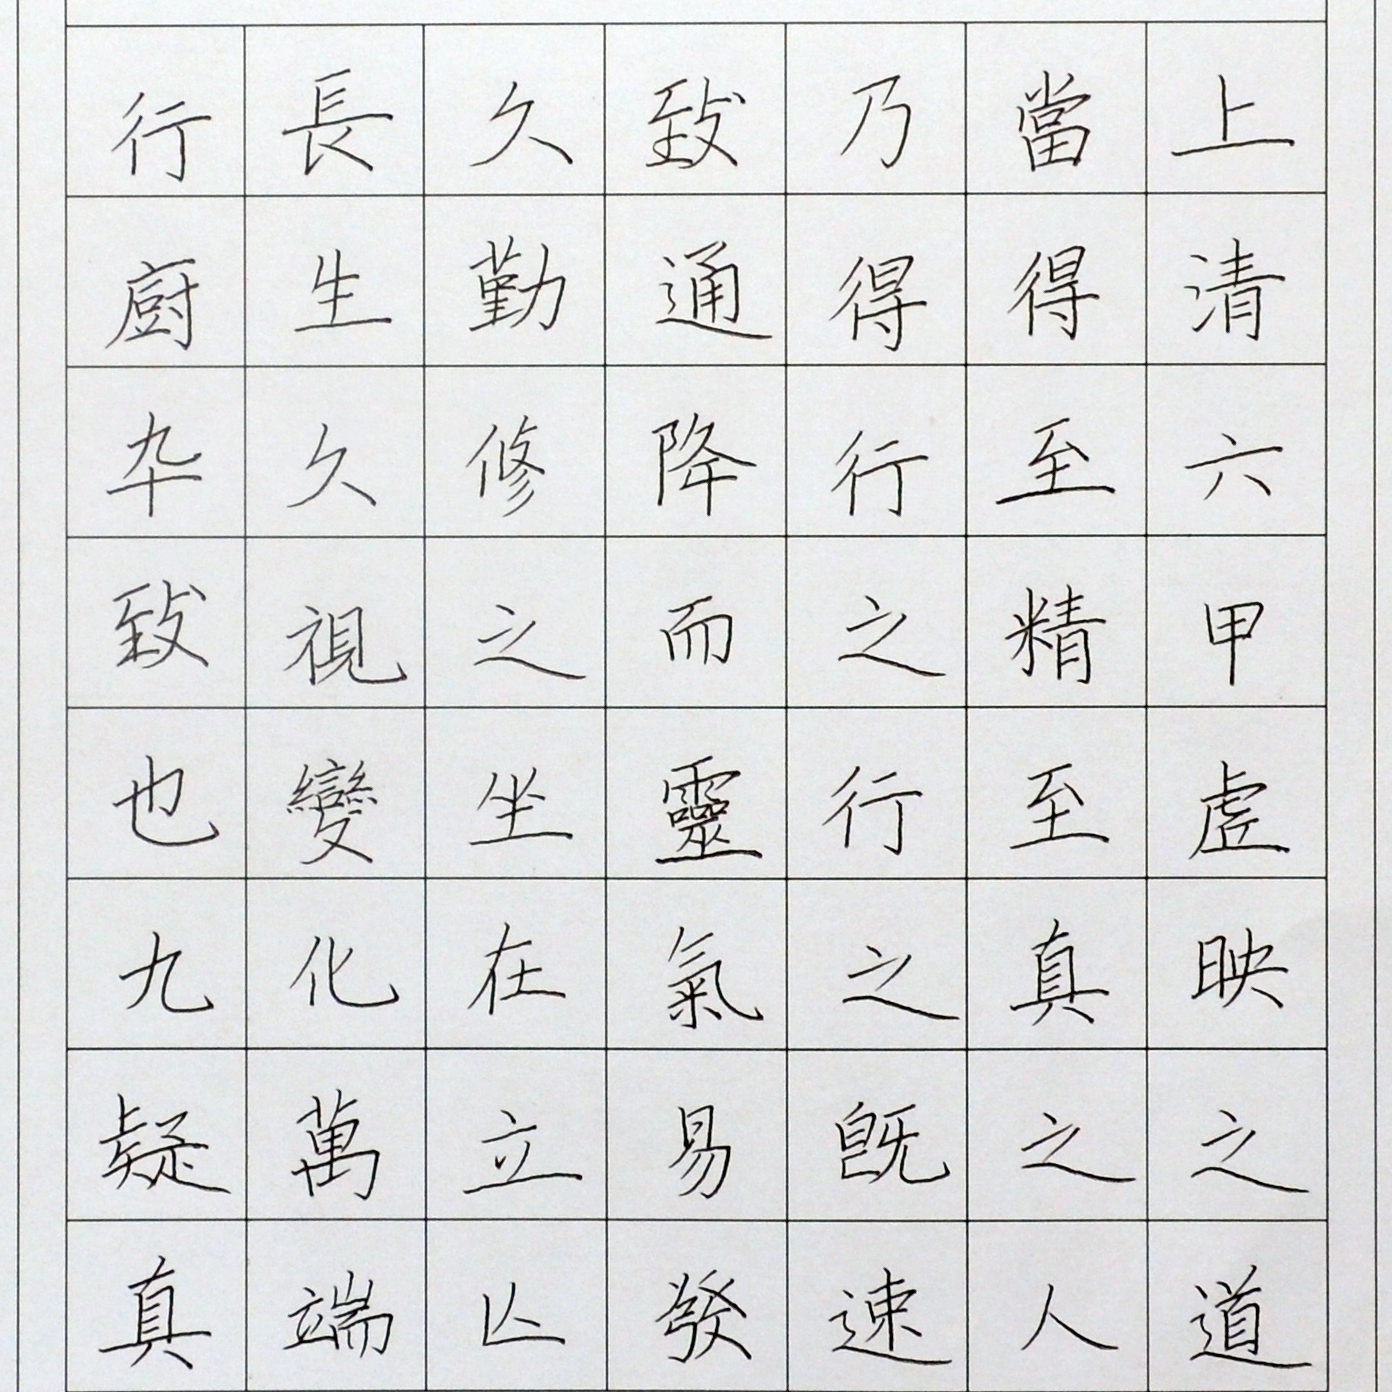 上清六甲虗映之道
當得至精至真之人
乃得行之行之既速
致通降而靈氣易發
久勤修之坐在立亾
長生久視變化萬端
行廚卆致也九疑真